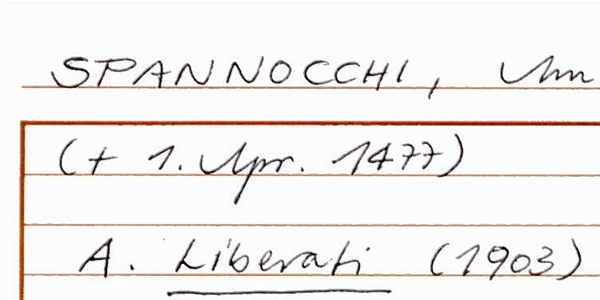 SPANNOCCHI,
(+ 1. Apr. 1477)
A. Liberati (1903)